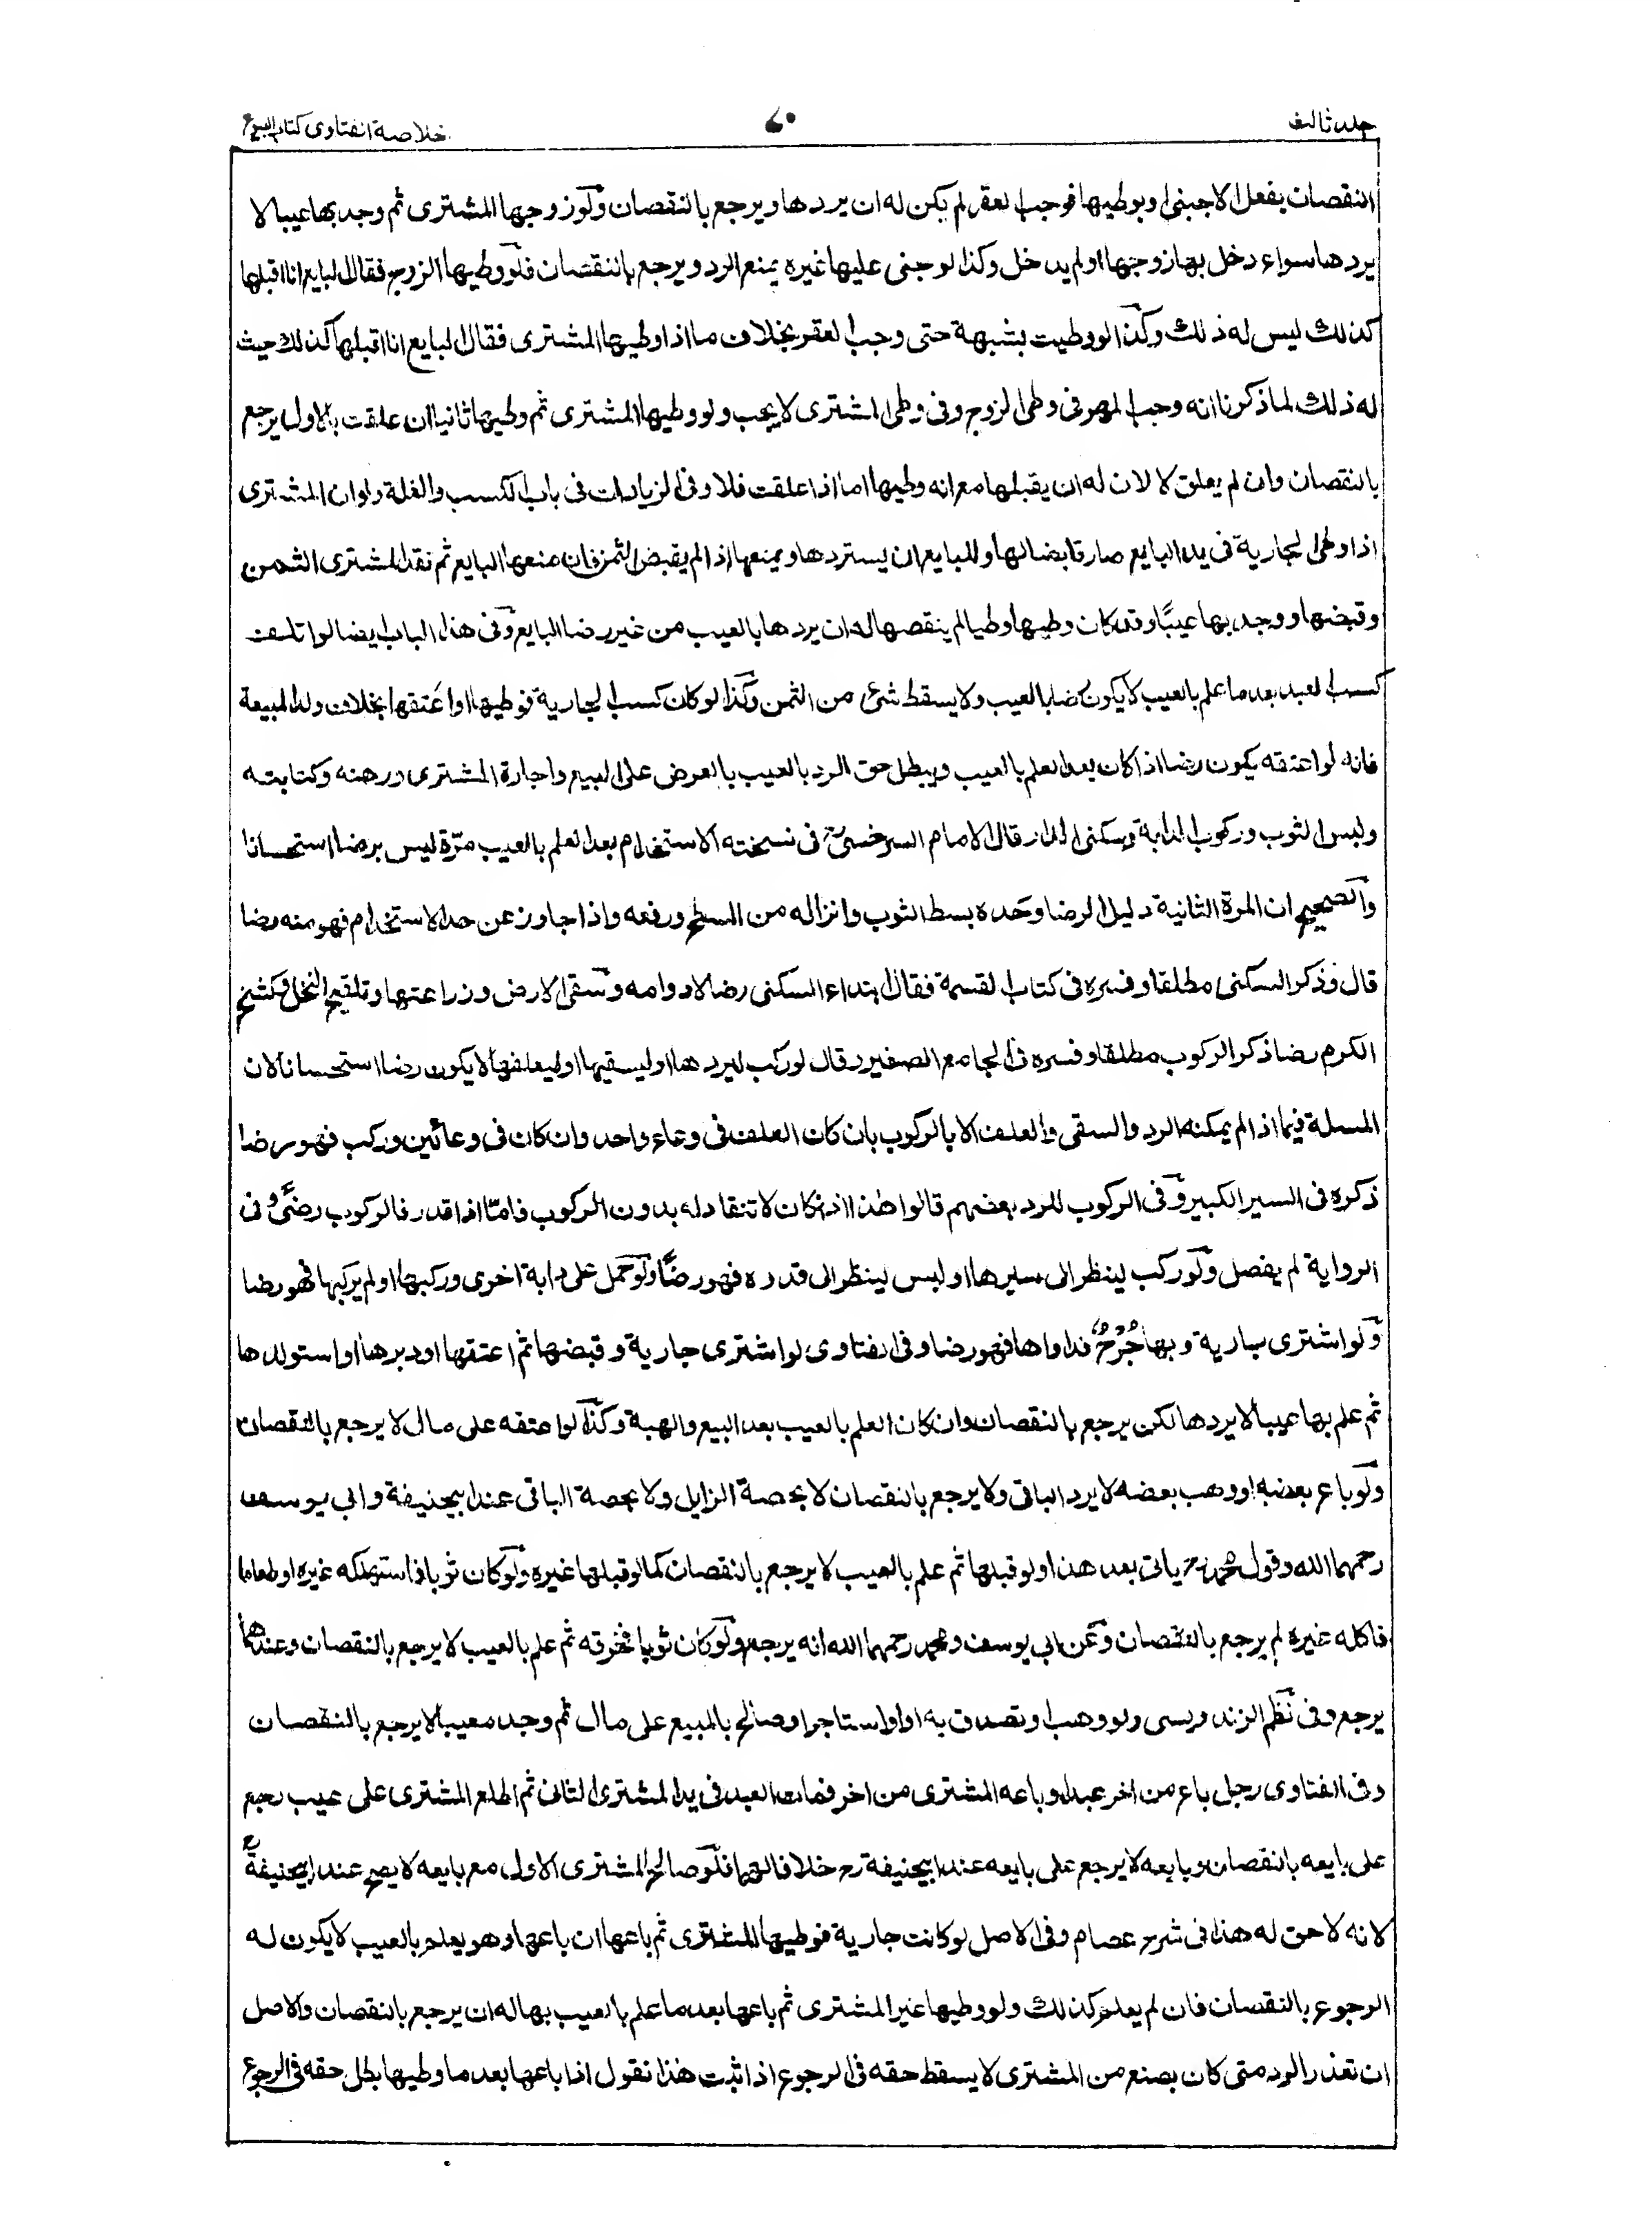 جلد ثالث
٧٠
خلاصة الفتاوى كتاب البيوع
النقصان بفعل الاجنبى او بوطيها فوجب العقر لم يكن له ان يردها ويرجع بالنقصان ولو زوجها المشترى ثم وجد بها عيبا لا
يردها سواء دخل بها زوجها او لم يدخل وكذا لو جنى عليها غيره يمنع الرد ويرجع بالنقصان فلو وطيها الزوج فقال البايع انا اقبلها
كذلك ليس له ذلك وكذا لو وطيت بشبهة حتى وجب العقر بخلاف ما اذا وطيها المشترى فقال البايع انا اقبلها كذلك حيث
له ذلك لما ذكرنا انه وجب المهر فى وطى الزوج وفى وطى المشترى لا يجب ولو وطيها المشترى ثم وطيها ثانيا ان علقت بالاول يرجع
بالنقصان وان لم يعلق لا لان له ان يقبلها مع انه وطيها اما اذا علقت فلا وفى الزيادات فى باب الكسب والغلة ولو ان المشترى
اذا وطى الجارية فى يد البايع صار قابضا لها وللبايع ان يستردها ويمنعها اذا لم يقبض الثمن فان منعها البايع ثم نقد المشترى الثمن
وقبضها ووجد بها عيبًا وقد كان وطيها وطيا لم ينقصها له ان يردها بالعيب من غير رضا البايع وفى هذا الباب ايضا لو اتلف
كسب العبد بعد ما علم بالعيب لا يكون رضا بالعيب ولا يسقط شئ من الثمن وكذا لو كان كسب الجارية فوطيها او اعتقها بخلاف ولد المبيعة
فانه لو اعتقه يكون رضا اذا كان بعد العلم بالعيب ويبطل حق الرد بالعيب بالعرض على البيع واجارة المشترى ورهنه وكتابته
ولبس الثوب وركوب الدابة وسكنى الدار قال الامام السرخسى رح فى نسخته الاستخدام بعد العلم بالعيب مرّة ليس برضا استحسانا
والصحيح ان المرة الثانية دليل الرضا وحده بسط الثوب وانزاله من السطح ورفعه واذا جاوز عن حد الاستخدام فهو منه رضا
قال وذكر السكنى مطلقا وفسره فى كتاب القسمة فقال ابتداء السكنى رضا لا دوامه وسقى الارض وزراعتها وتلقيح النخل وكشخ
الكرم رضا ذكر الركوب مطلقا وفسره فى الجامع الصغير وقال لو ركب ليردها او ليسقيها او ليعلفها لا يكون رضا استحسانا لان
المسلة فيما اذا لم يمكنه الرد والسقى والعلف الا بالركوب بان كان العلف فى وعاء واحد وان كان فى وعائين وركب فهو رضا
ذكره فى السير الكبير وفى الركوب للرد بعضهم قالوا هذا اذا كان لا تنقاد له بدون الركوب فامّا اذا قدر فالركوب رضًى وفى
الرواية لم يفصل ولو ركب لينظر الى سيرها او لبس لينظر الى قدره فهو رضًا ولو حمل على دابة اخرى وركبها او لم يركبها فهو رضا
ولو اشترى جارية وبها جُرْحٌ فداواها فهو رضا وفى الفتاوى لو اشترى جارية وقبضها ثم اعتقها او دبرها او استولدها
ثم علم بها عيبا لا يردها لكن يرجع بالنقصان وان كان العلم بالعيب بعد البيع والهبة وكذا لو اعتقه على مال لا يرجع بالنقصان
ولو باع بعضه او وهب بعضه لا يرد الباقى ولا يرجع بالنقصان لا بحصة الزايل ولا بحصة الباقى عند ابيحنيفة وابى يوسف
رحمهما الله وقول محمد رح ياتى بعد هذا ولو قبلها ثم علم بالعيب لا يرجع بالنقصان كما لو قبلها غيره ولو كان ثوبا فاستهلكه غيره او طعاما
فاكله غيره لم يرجع بالنقصان وعن ابى يوسف ومحمد رحمهما الله انه يرجع ولو كان ثوبا فخرقه ثم علم بالعيب لا يرجع بالنقصان وعندهما
يرجع وفى نظم الزندويسى ولو وهب او تصدق به او استاجر او صالح بالمبيع على مال ثم وجد معيبا لا يرجع بالنقصان
وفى الفتاوى رجل باع من اخر عبدا وباعه المشترى من اخر فمات العبد فى يد المشترى الثانى ثم اطلع المشترى على عيب رجع
على بايعه بالنقصان وبايعه لا يرجع على بايعه عند ابيحنيفة رح خلافا لهما فلو صالح المشترى الاول مع بايعه لا يصح عند ابيحنيفة رح
لانه لا حق له هذا فى شرح عصام وفى الاصل لو كانت جارية فوطيها المشترى ثم باعها ان باعها وهو يعلم بالعيب لا يكون له
الرجوع بالنقصان فان لم يعلم كذلك ولو وطيها غير المشترى ثم باعها بعد ما علم بالعيب بها له ان يرجع بالنقصان والاصل
ان تعذر الرد متى كان بصنع من المشترى لا يسقط حقه فى الرجوع اذا ثبت هذا نقول اذا باعها بعد ما وطيها بطل حقه فى الرجوع